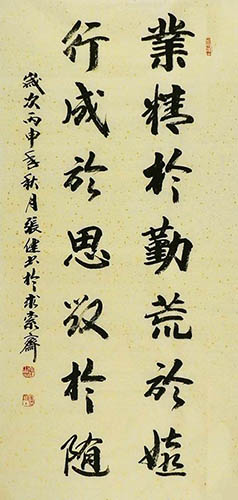 業精於勤荒於嬉
行成於思毀於隨
歲次丙申年秋月張健書於求索齋